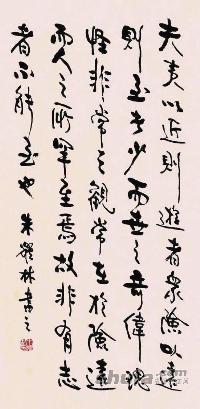 夫夷以近則遊者眾險以遠
則至者少而世之奇偉瑰
怪非常之觀常在於險遠
而人之所罕至焉故非有志
者不能至也 朱耀林書之